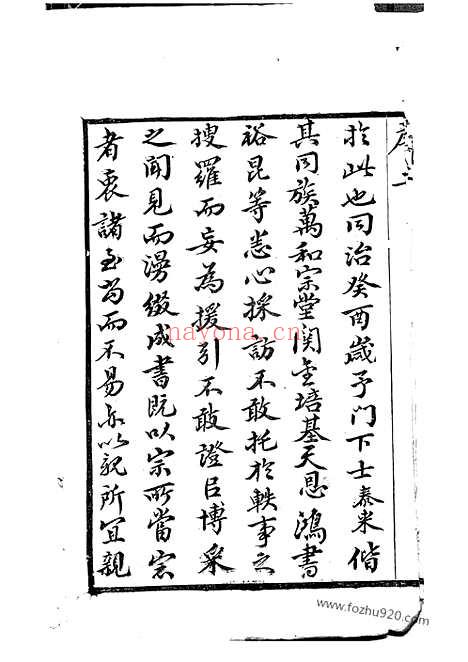 於此也同治癸酉歲予門下士泰來偕
其同族萬和宗堂関金培基天恩鴻書
裕昆等悉心採訪不敢托於軼事之
搜羅而妄為援引不敢證已博采
之聞見而漫綴成書既以宗所當宗
者衷諸至當而不易亦以親所宜親
nayona.cn
www.fozhu920.com